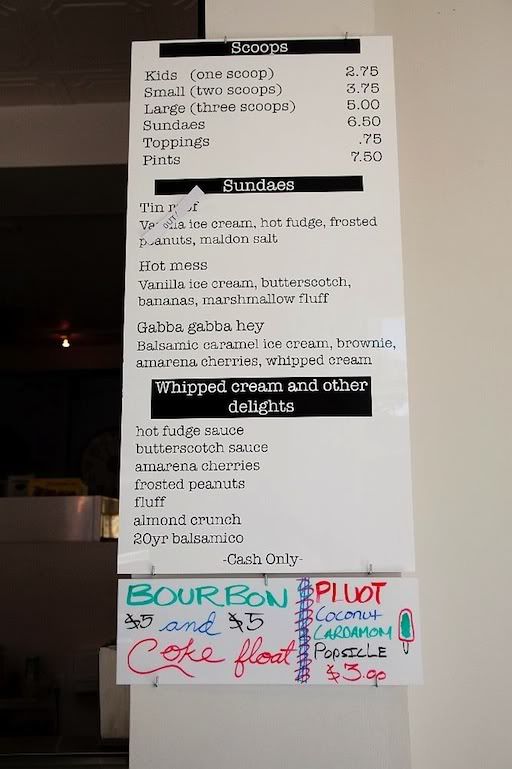 Scoops
Kids (one scoop) 2.75
Small (two scoops) 3.75
Large (three scoops) 5.00
Sundaes 6.50
Toppings .75
Pints 7.50
Sundaes
Tin
ice cream, hot fudge, frosted
peanuts, maldon salt
Hot mess
Vanilla ice cream, butterscotch,
bananas, marshmallow fluff
Gabba gabba hey
Balsamic caramel ice cream, brownie,
amarena cherries, whipped cream
Whipped cream and other
delights
hot fudge sauce
butterscotch sauce
amarena cherries
frosted peanuts
fluff
almond crunch
20yr balsamico
-Cash Only-
BOURBON
$5 and $5
Coke float
PLUOT
Coconut
CARDAMOM
POPSICLE
$3.00